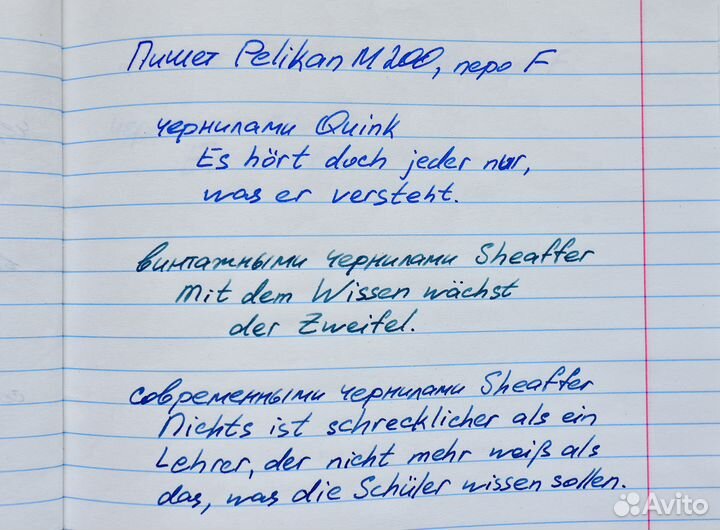 Пишет Pelikan M200, перо F
чернилами Quink
Es hört doch jeder nur,
was er versteht.
винтажными чернилами Sheaffer
Mit dem Wissen wächst
der Zweifel.
современными чернилами Sheaffer
Nichts ist schrecklicher als ein
Lehrer, der nicht mehr weiß als
das, was die Schüler wissen sollen.
Avito